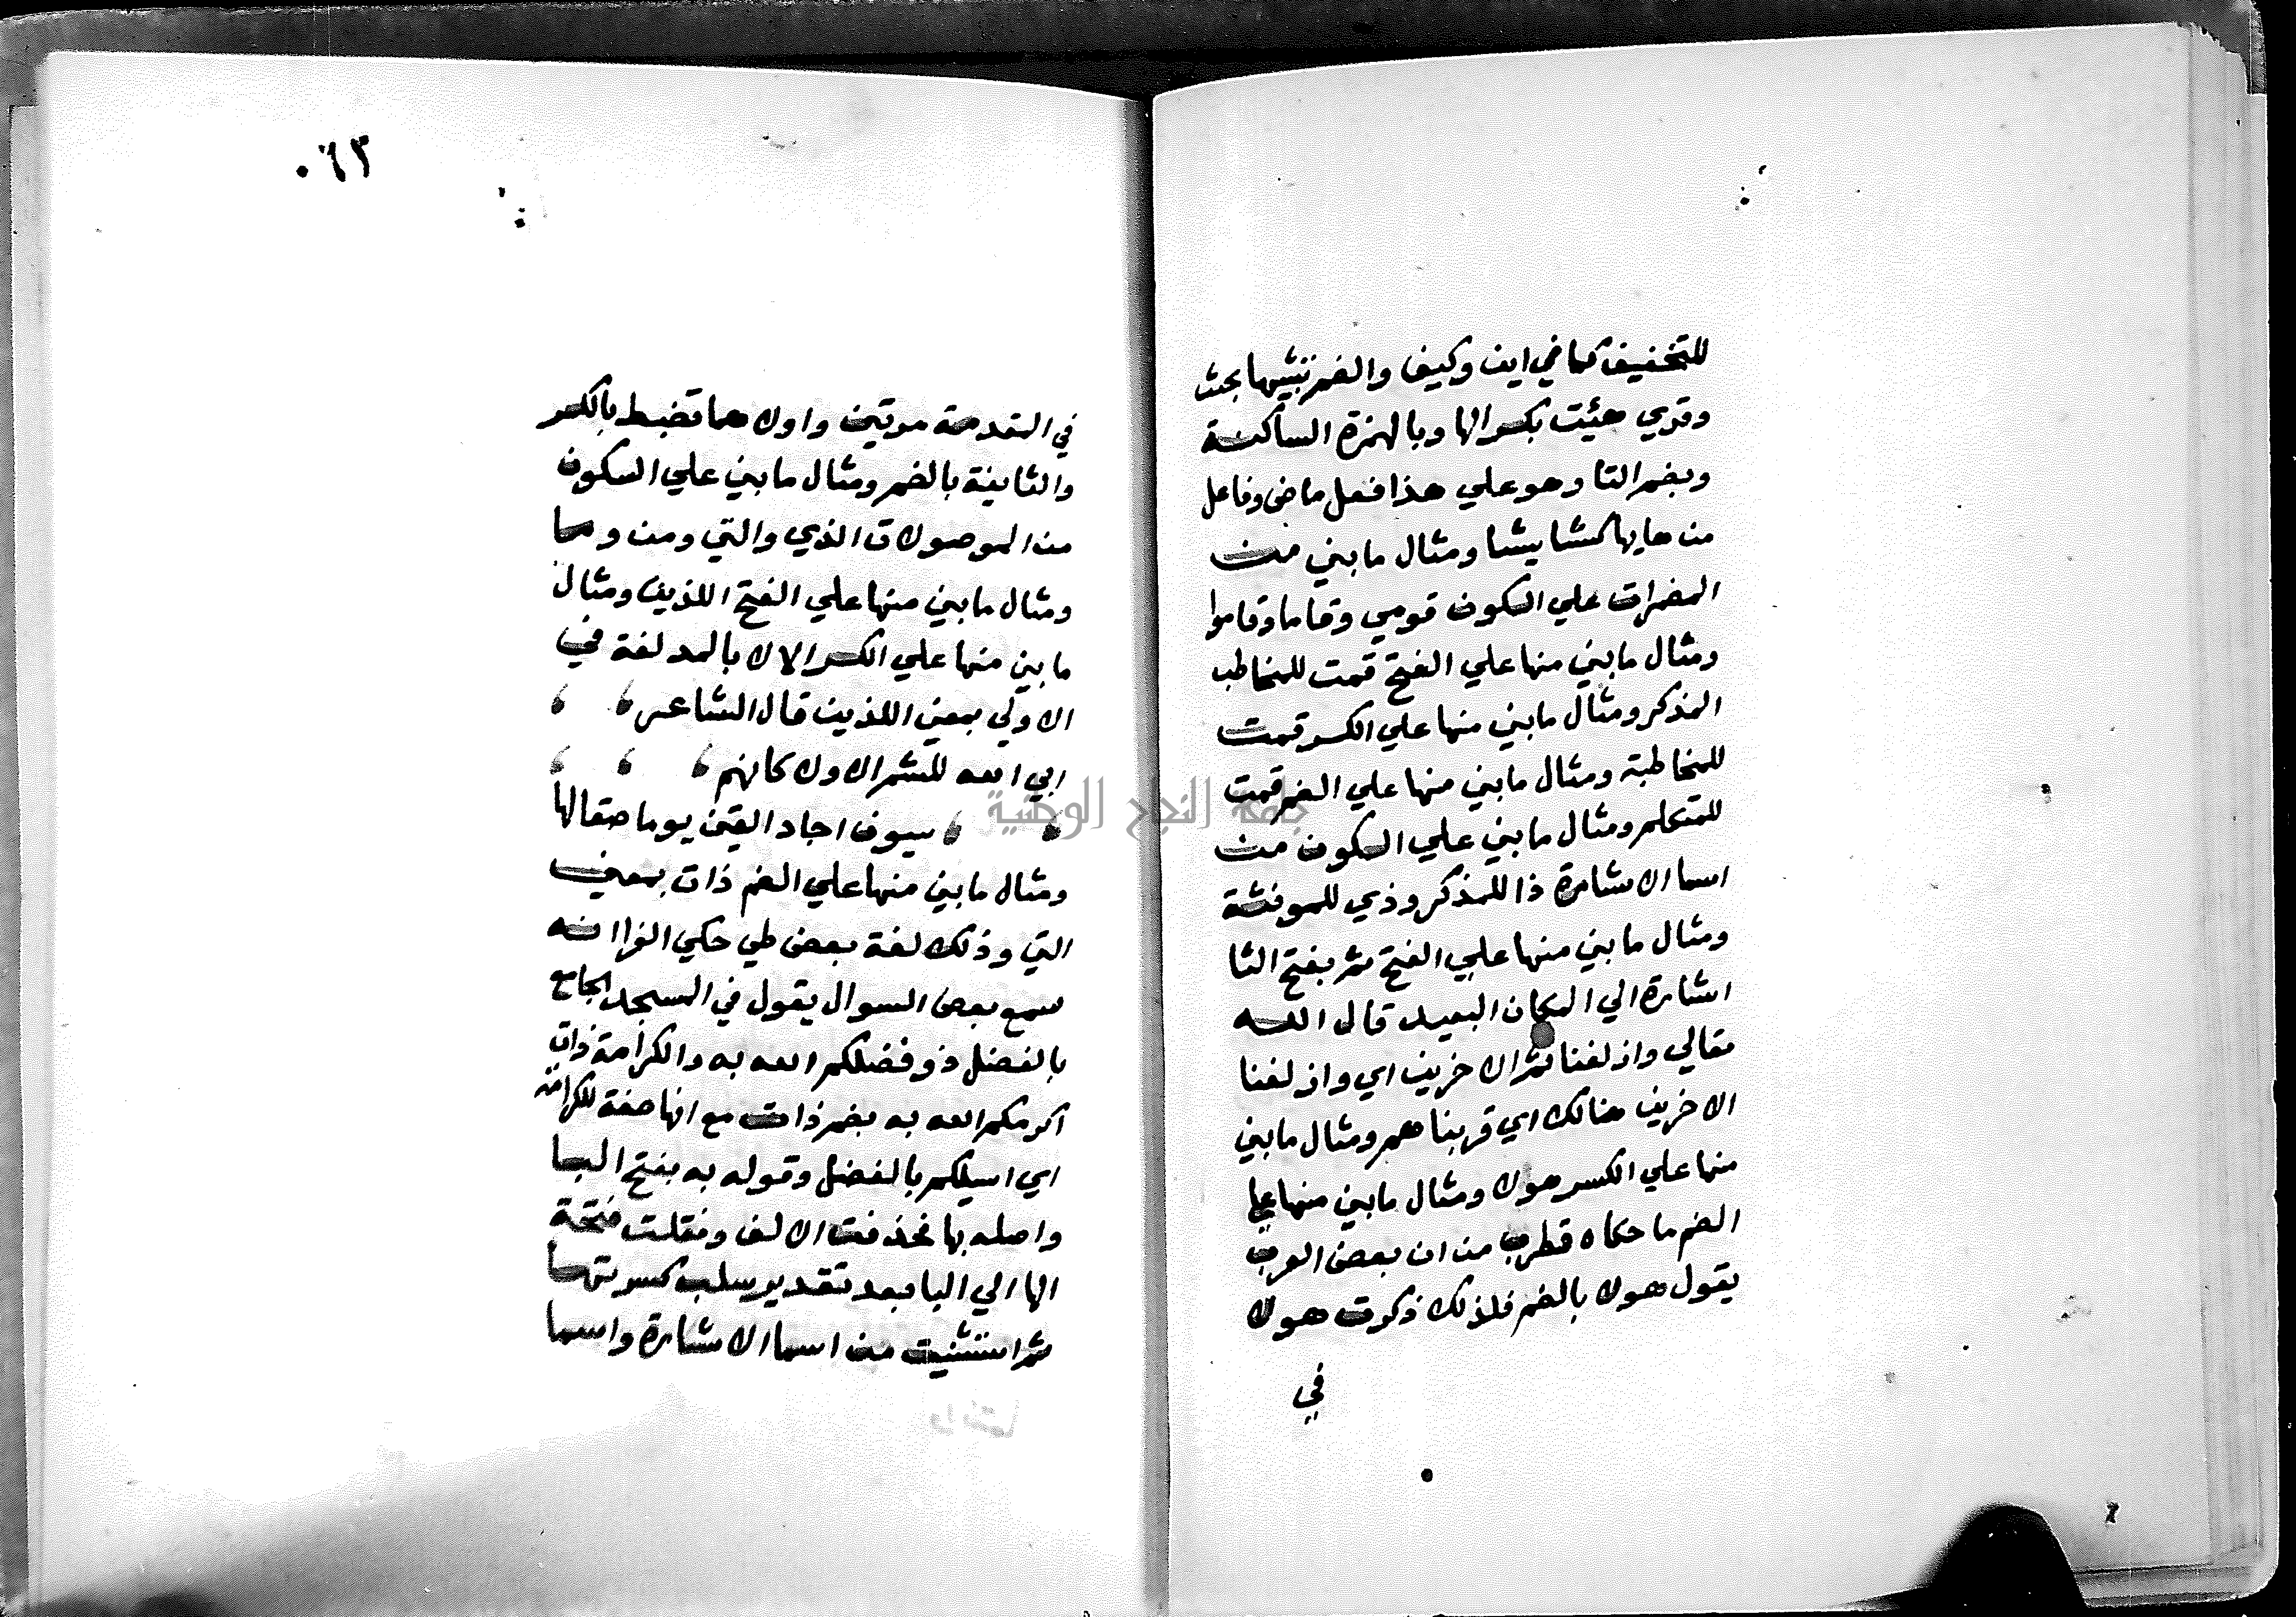 للتخفيف كما في اين وكيف والضم تشبيها بحيث
وقري هئت بكسر الها وبالهمزة الساكنة
وبضم التا وهو علي هذا فعل ماض وفاعل
من هايها كشا يشا ومثال ما بني من
المضمرات علي السكون قومي وقاما وقاموا
ومثال ما بني منها علي الفتح قمت للمخاطب
المذكر ومثال ما بني منها علي الكسر قمت
للمخاطبة ومثال ما بني منها علي الضم قمت
للمتكلم ومثال ما بني علي السكون من
اسما الاشارة ذا للمذكر وذي للمونثة
ومثال ما بني منها علي الفتح ثم بفتح الثا
اشارة الي المكان البعيد قال الله
تعالي وازلفنا ثم الاخرين اي وازلفنا
الاخرين هنالك اي قربناهم ومثال ما بني
منها علي الكسر هولا ومثال ما بني منها علي
الضم ما حكاه قطرب من ان بعض العرب
يقول هولا بالضم فلذلك ذكرت هولا
في
٠٦٢
في المقدمة مرتين واولاهما تضبط بالكسر
والثانية بالضم ومثال ما بني علي السكون
من الموصولات الذي والتي ومن وما
ومثال ما بني منها علي الفتح الذين ومثال
ما بني منها علي الكسر الالا بالمد لغة في
الاولي بمعني الذين قال الشاعر
ابي الله للشم الالا كانهم
سيوف اجاد القين يوما صقالها
ومثال ما بني منها علي الضم ذات بمعني
التي وذلك لغة بعض طي حكي الفرا انه
سمع بعض السوال يقول في المسجد الجامع
بالفضل ذو فضلكم الله به والكرامة ذات
اكرمكم الله به بضم ذات مع انها صفة للكرامة
اي اسيلكم بالفضل وقوله به بفتح البا
واصله بها فحذفت الالف ونقلت فتحة
الها الي البا بعد تقدير سلب كسرتها
ثم استثنيت من اسما الاشارة واسما
جامعة النجاح الوطنية